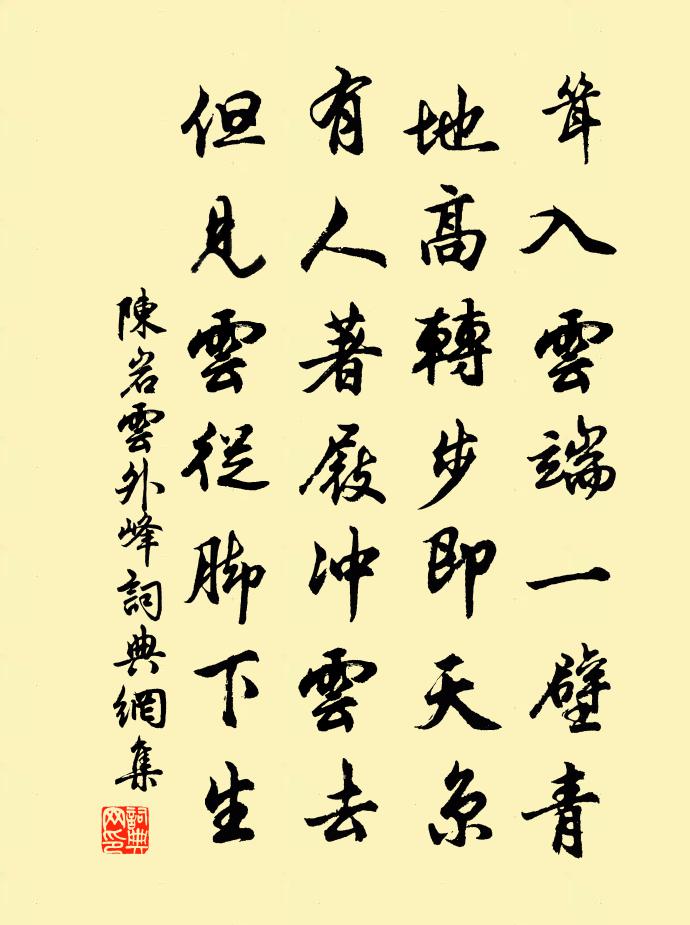 耸入雲端一壁青
地高轉步即天京
有人著屐冲雲去
但見雲從脚下生
陳岩雲外峰詞典網集
詞典网印